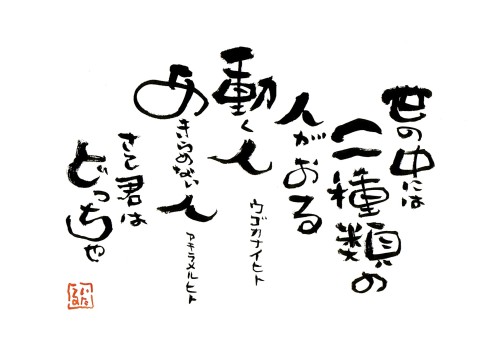 世の中には
二種類の
人がおる
動く人
ウゴカナイヒト
あきらめない人
アキラメルヒト
さて君は
どっちや